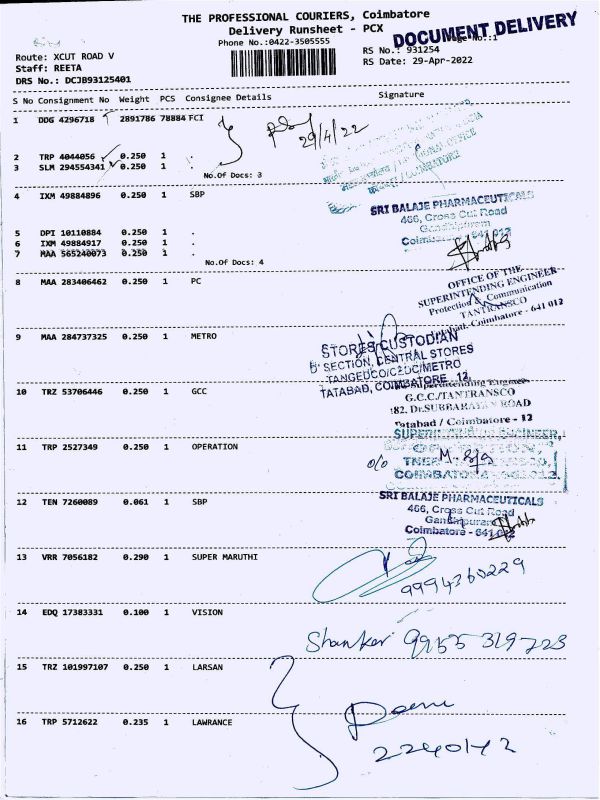 THE PROFESSIONAL COURIERS, Coimbatore
Delivery Runsheet - PCX
Phone No.:0422-3505555
DOCUMENT DELIVERY
Route: XCUT ROAD V
Staff: REETA
DRS No.: DCJB93125401
RS No.: 931254
RS Date: 29-Apr-2022
S No Consignment No Weight PCS Consignee Details Signature
1 DDG 4296718 2891786 78884 FCI
29/4/22
2 TRP 4044056 0.250 1 .
3 SLM 294554341 0.250 1 .
No.Of Docs: 3
4 IXM 49884896 0.250 1 SBP
SRI BALAJE PHARMACEUTICALS
466, Cross Cut Road
Gandhipuram
Coimbatore - 641 012
5 DPI 10110884 0.250 1 .
6 IXM 49884917 0.250 1 .
7 MAA 565240073 0.250 1 .
No.Of Docs: 4
8 MAA 283406462 0.250 1 PC
OFFICE OF THE
SUPERINTENDING ENGINEER
Protection & Communication
TANTRANSCO
Tatabad, Coimbatore - 641 012
9 MAA 284737325 0.250 1 METRO
STORES CUSTODIAN
'D' SECTION, CENTRAL STORES
TANGEDCO/C2DC/METRO
TATABAD, COIMBATORE - 12.
10 TRZ 53706446 0.250 1 GCC
Superintending Engineer
G.C.C./TANTRANSCO
182, Dr.SUBBARAYAN ROAD
Tatabad / Coimbatore - 12
11 TRP 2527349 0.250 1 OPERATION
SUPERINTENDING ENGINEER,
OPERATION,
COIMBATORE - 641 012.
12 TEN 7260089 0.061 1 SBP
SRI BALAJE PHARMACEUTICALS
466, Cross Cut Road
Gandhipuram
Coimbatore - 641 012
13 VRR 7056182 0.290 1 SUPER MARUTHI
9994360229
14 EDQ 17383331 0.100 1 VISION
Shanker 9955 319723
15 TRZ 101997107 0.250 1 LARSAN
16 TRP 5712622 0.235 1 LAWRANCE
2240142